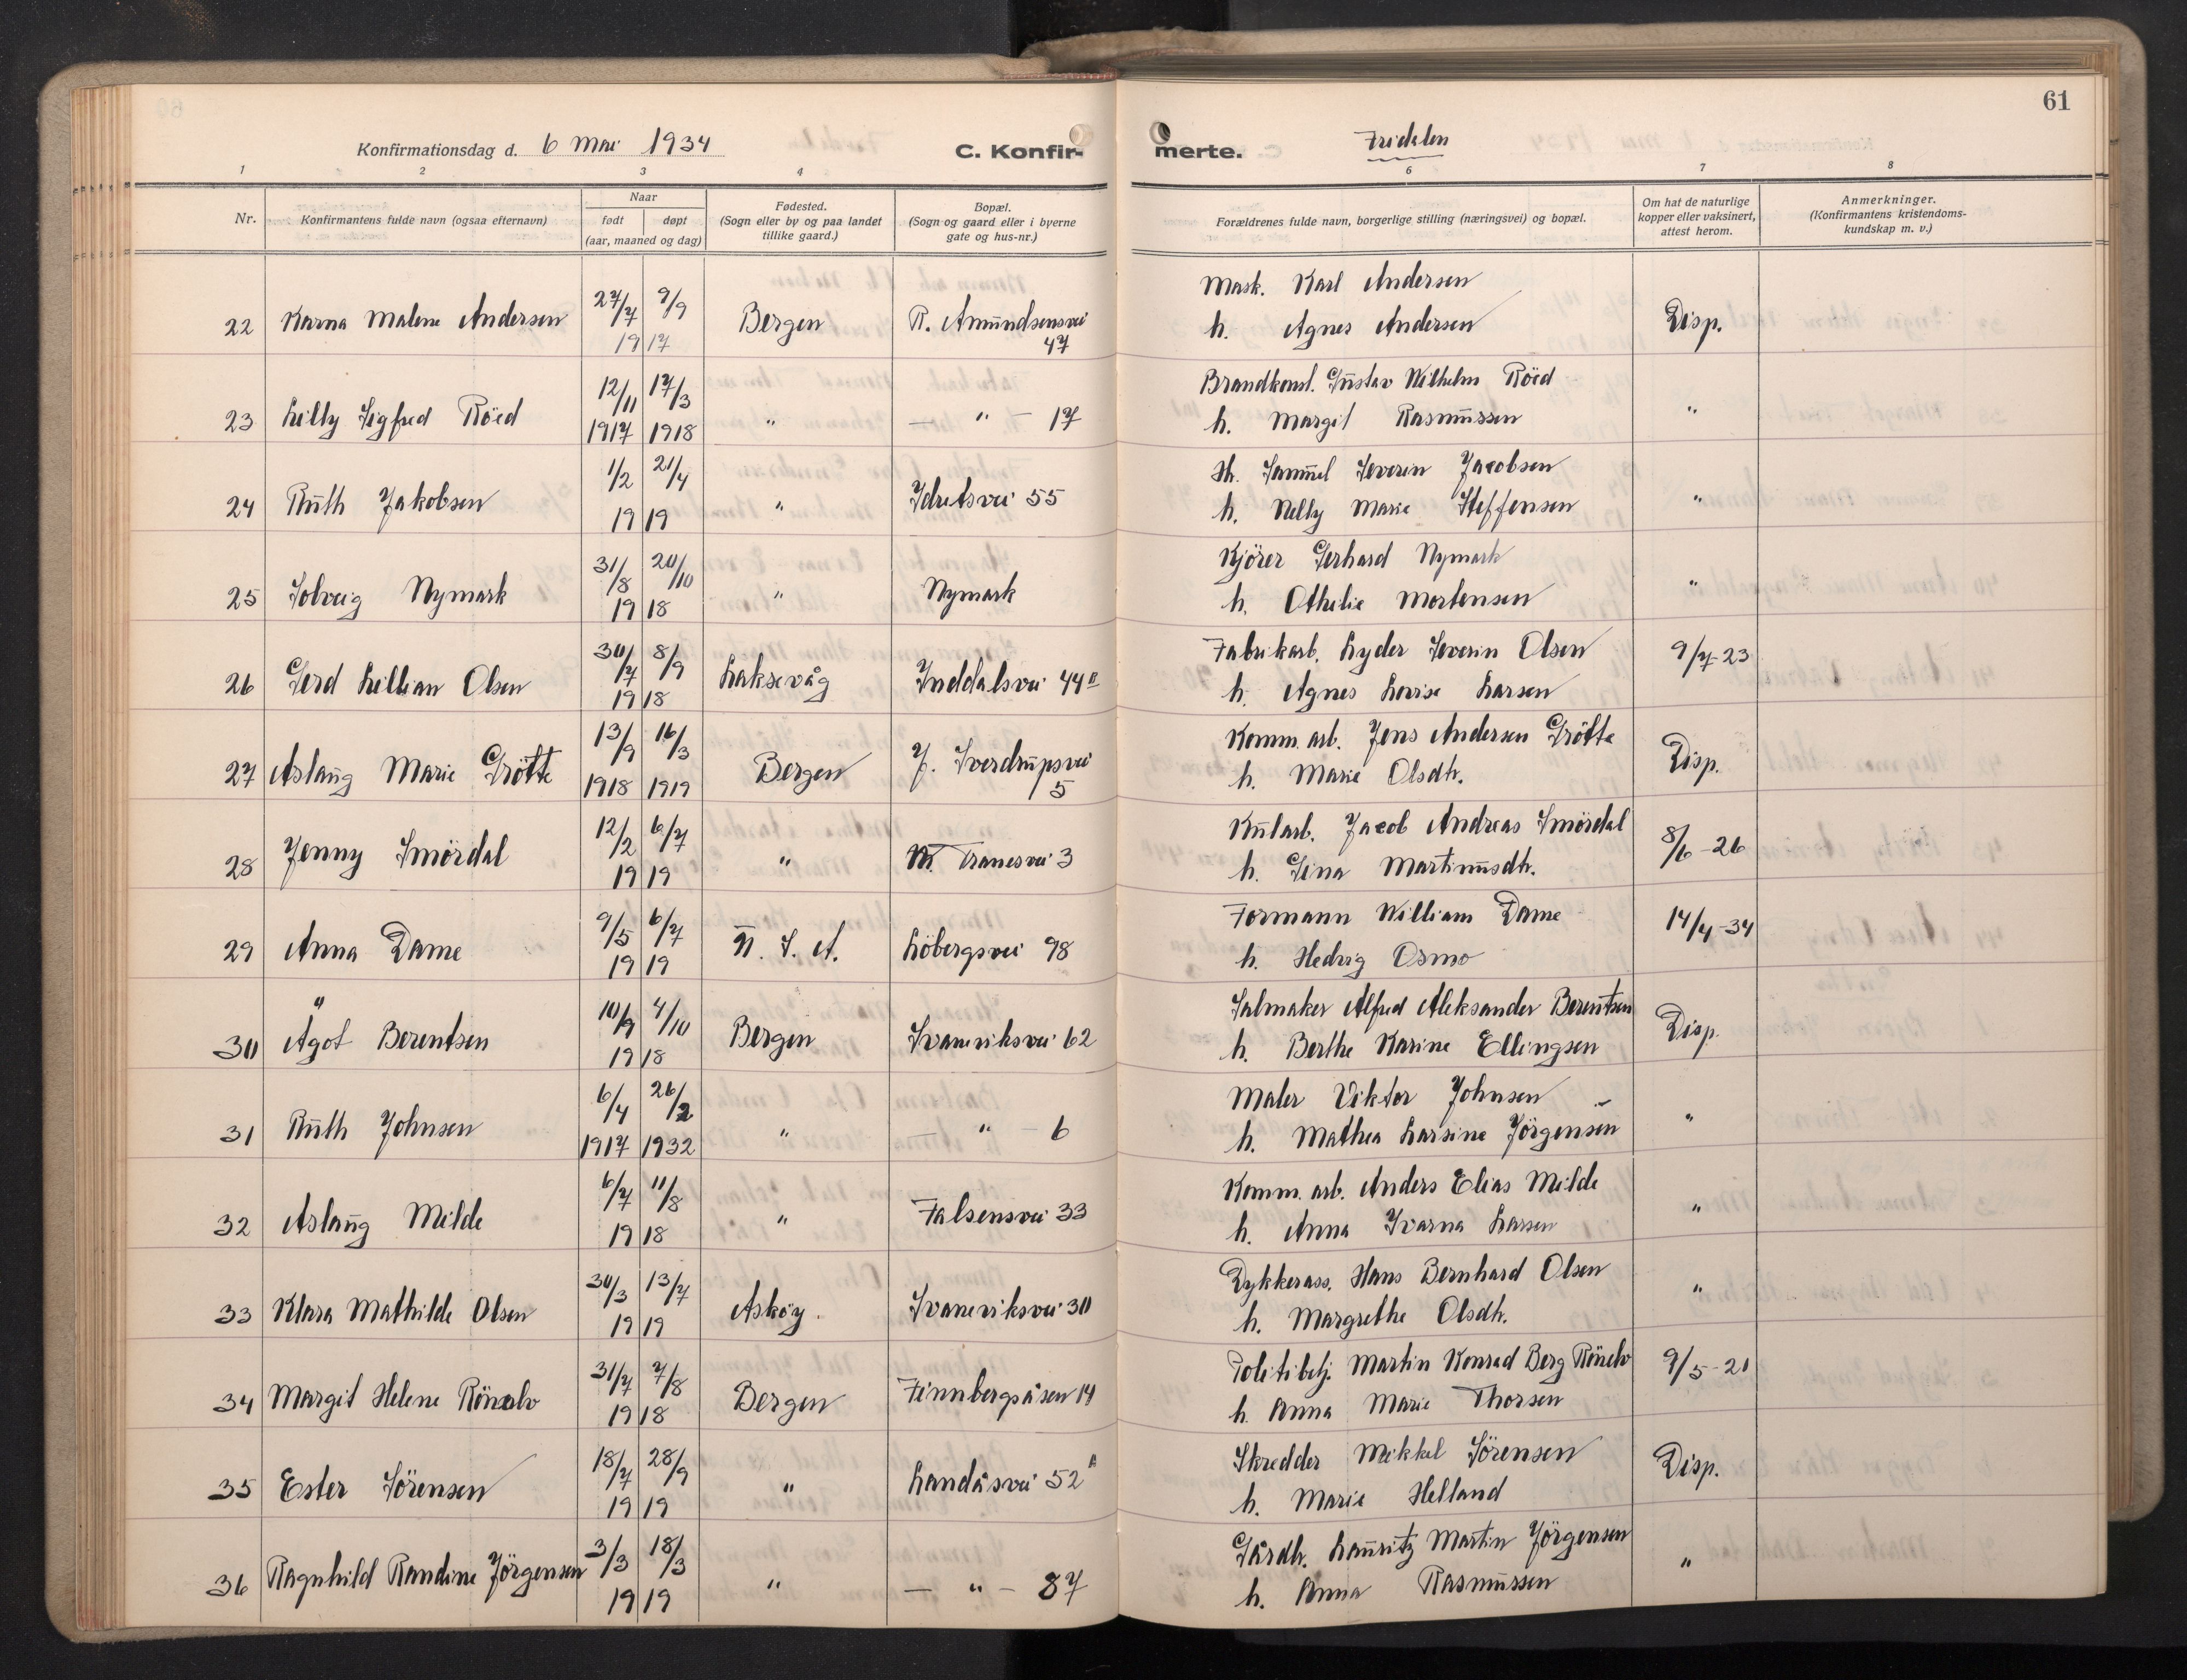 61
Konfirmationsdag d. 6 Mai 1934 C. Konfir- merte. Fridalen
1 2 3 4 6 7 8
Nr. Konfirmantens fulde navn (ogsaa efternavn) Naar født døpt (aar, maaned og dag) Fødested. (Sogn eller by og paa landet tillike gaard.) Bopæl. (Sogn og gaard eller i byerne gate og hus-nr.) Forældrenes fulde navn, borgerlige stilling (næringsvei) og bopæl. Om hat de naturlige kopper eller vaksinert, attest herom. Anmerkninger. (Konfirmantens kristendoms- kundskap m. v.)
Mask. Karl Andersen
22 Karna Malene Andersen 27/7 9/9 1917 Bergen R. Amundsensvei 47 Disp.
h. Agnes Andersen
Brandkonst. Gustav Wilhelm Röed
23 Lilly Sigfred Röed 12/11 1917 17/3 1918 " — " — 17 "
h. Margit Rasmussen
Sh. Samuel Severin Jacobsen
24 Ruth Jakobsen 1/2 21/4 1919 " Idretsvei 55 "
h. Nelly Marie Steffensen
Kjörer Gerhard Nymark
25 Solveig Nymark 31/8 20/10 1918 " Nymark "
h. Othilie Mortensen
Fabrikarb. Lyder Severin Olsen
26 Gerd Lillian Olsen 30/7 8/9 1918 Laksevåg Inddalsvei 44 II 9/7-23
h. Agnes Lovise Larsen
Komm. arb. Jens Andersen Grötte
27 Aslaug Marie Grötte 13/9 1918 16/3 1919 Bergen J. Sverdrupsvei 5 Disp.
h. Marie Olsdtr.
Kularb. Jacob Andreas Smördal
28 Jenny Smördal 12/2 6/7 1919 " M. Tranesvei 3 8/6-26
h. Gina Martinusdtr.
Formann William Dame
29 Anna Dame 9/5 6/7 1919 U. S. A. Löbergsvei 98 14/4-34
h. Hedvig Osmo
Salmaker Alfred Aleksander Berentsen
30 Ågot Berentsen 10/9 4/10 1918 Bergen Svaneviksvei 62 Disp.
h. Berthe Karine Ellingsen
Maler Viktor Johnsen
31 Ruth Johnsen 6/4 1917 26/2 1932 " — " — 6 "
h. Mathea Larsine Jörgensen
Komm. arb. Anders Elias Milde
32 Aslaug Milde 6/7 11/8 1918 " Falsensvei 33 "
h. Anna Ivarna Larsen
Dykkerass. Hans Bernhard Olsen
33 Klara Mathilde Olsen 30/3 13/7 1919 Asköy. Svaneviksvei 30 "
h. Margrethe Olsdtr.
Politibetj. Martin Konrad Berg Rönelv
34 Margit Helene Rönelv 31/7 7/8 1918 Bergen Finnbergåsen 14 9/5-21
h. Anna Marie Thorsen
Skredder Mikkel Sörensen
35 Ester Sörensen 18/7 28/9 1919 " Landåsvei 52 A Disp.
h. Marie Helland
Gårdb. Lauritz Martin Jörgensen
36 Ragnhild Randine Jörgensen 3/3 18/3 1919 " — " — 87 "
h. Anna Rasmussen